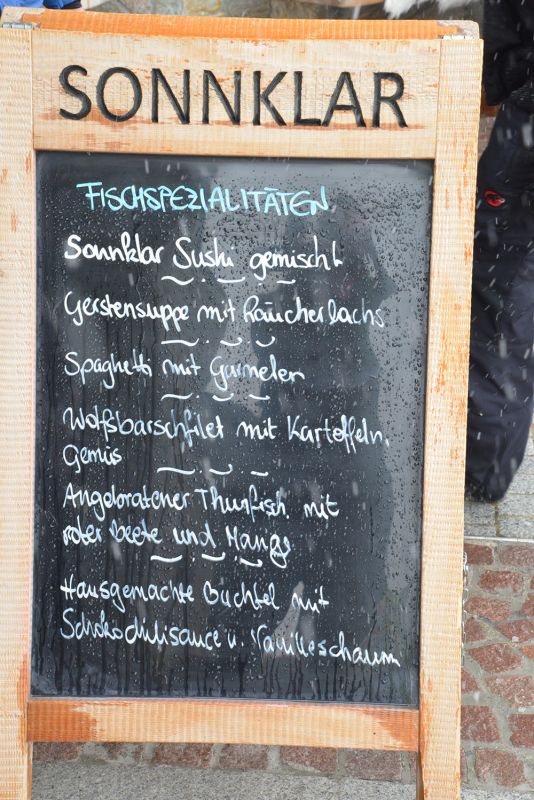 SONNKLAR
FISCHSPEZIALITÄTEN
Sonnklar Sushi gemischt
Gerstensuppe mit Räucherlachs
Spaghetti mit Garnelen
Wolfsbarschfilet mit Kartoffeln,
Gemüs
Angebratener Thunfisch mit
roter beete und Mango
Hausgemachte Buchtel mit
Schokochilisauce u. Vanilleschaum